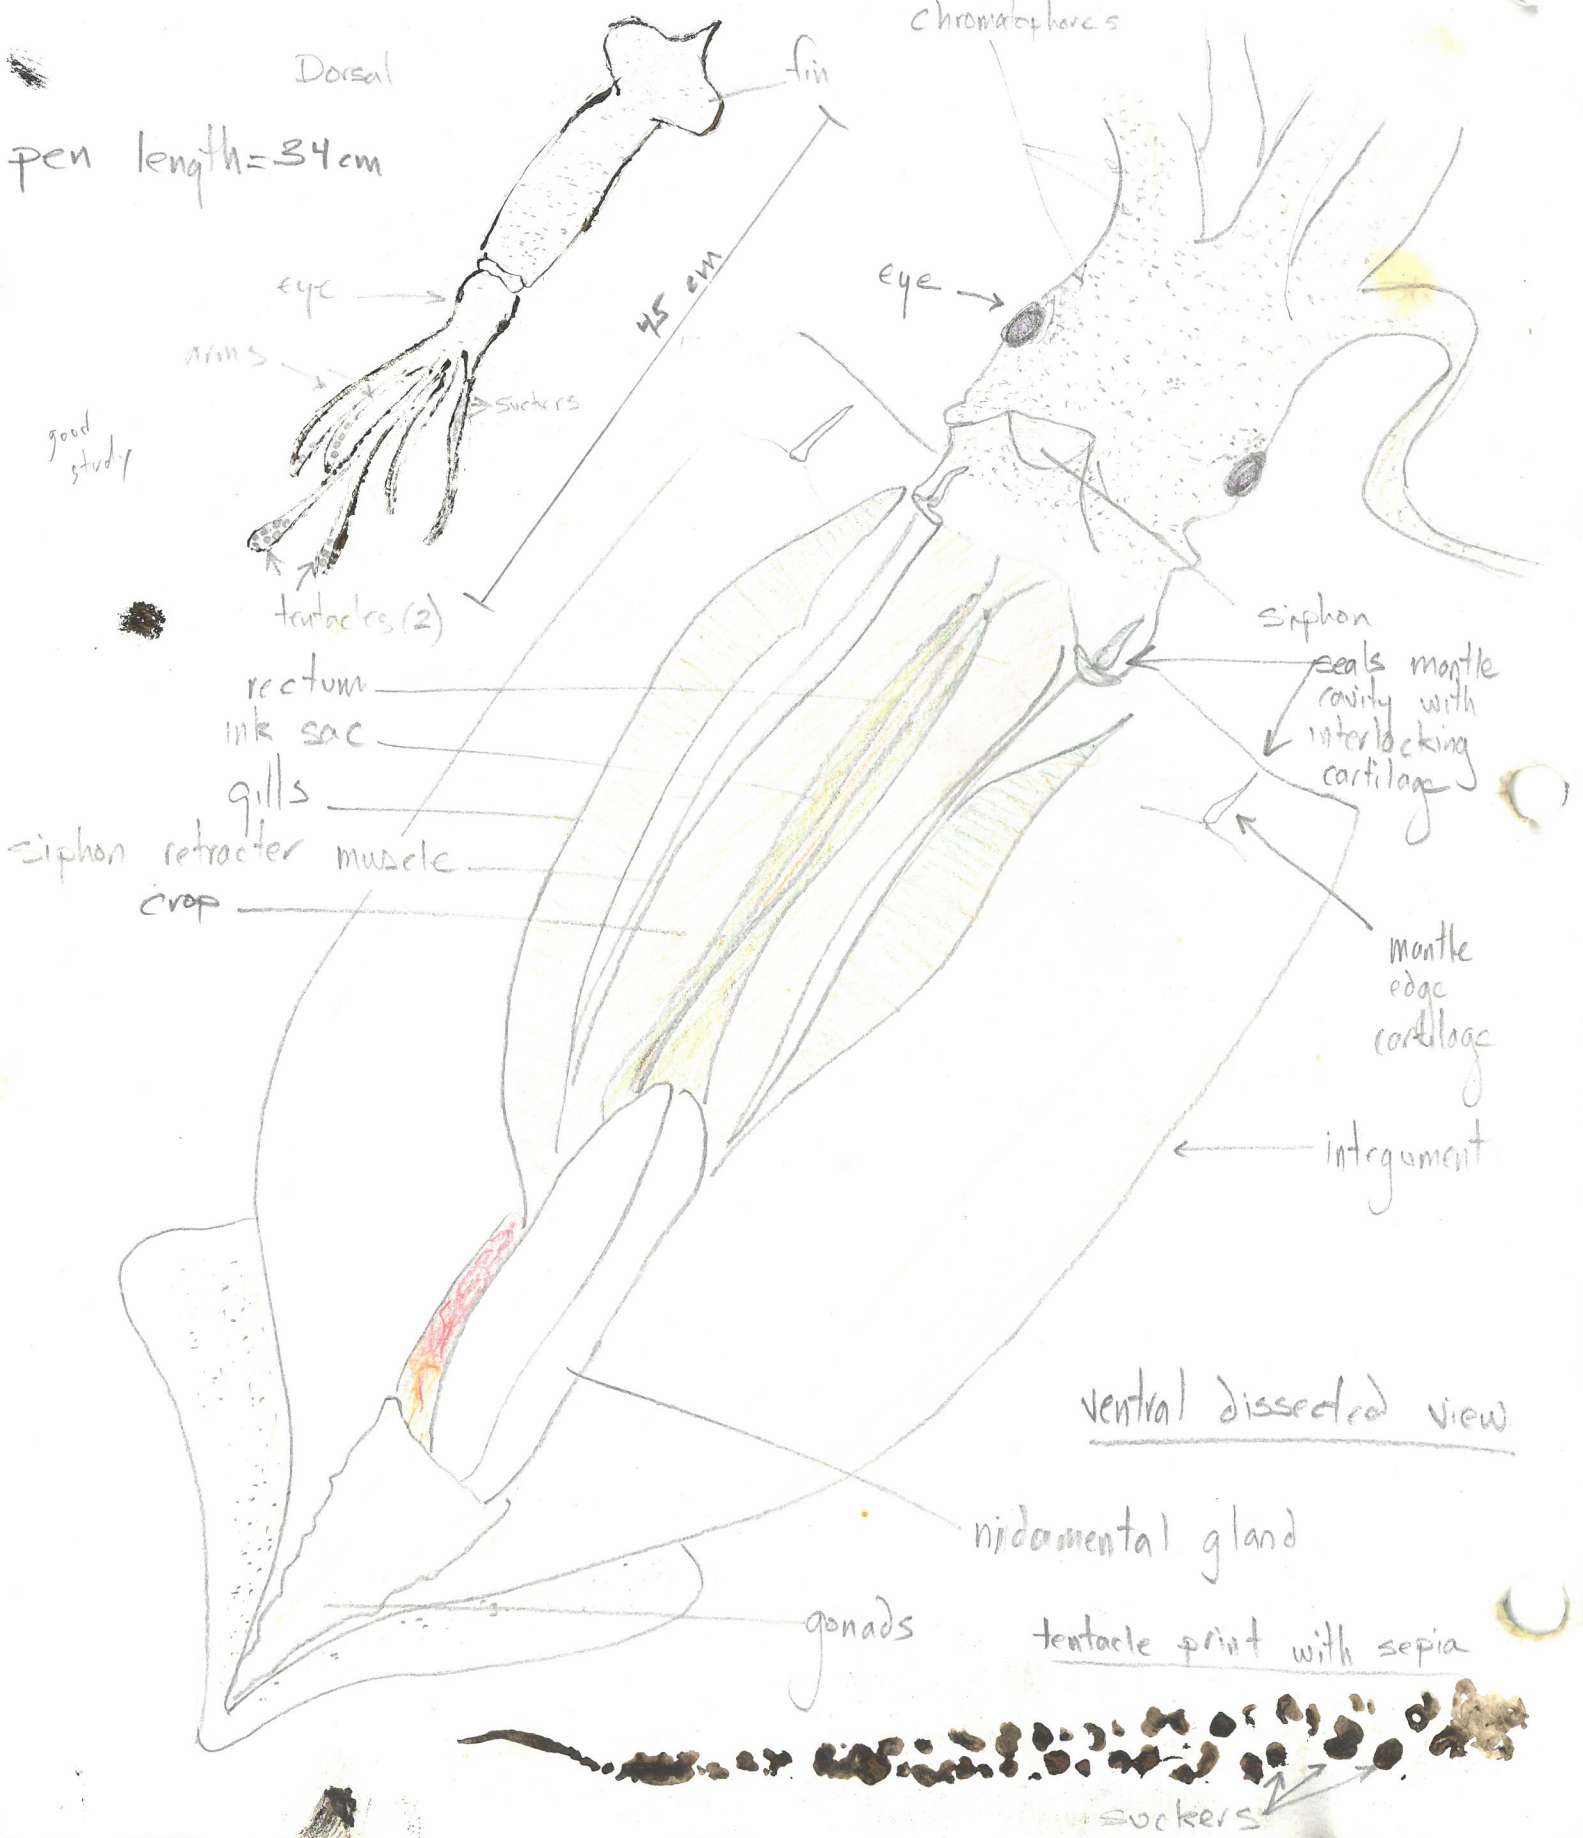 chromatophores
Dorsal
fin
pen length=34cm
eye
eye
45 cm
arms
suckers
good
study
tentacles (2)
siphon
seals mantle
cavity with
interlocking
cartilage
rectum
ink sac
gills
siphon retracter muscle
crop
mantle
edge
cartilage
integument
ventral dissected view
nidamental gland
gonads
tentacle print with sepia
suckers